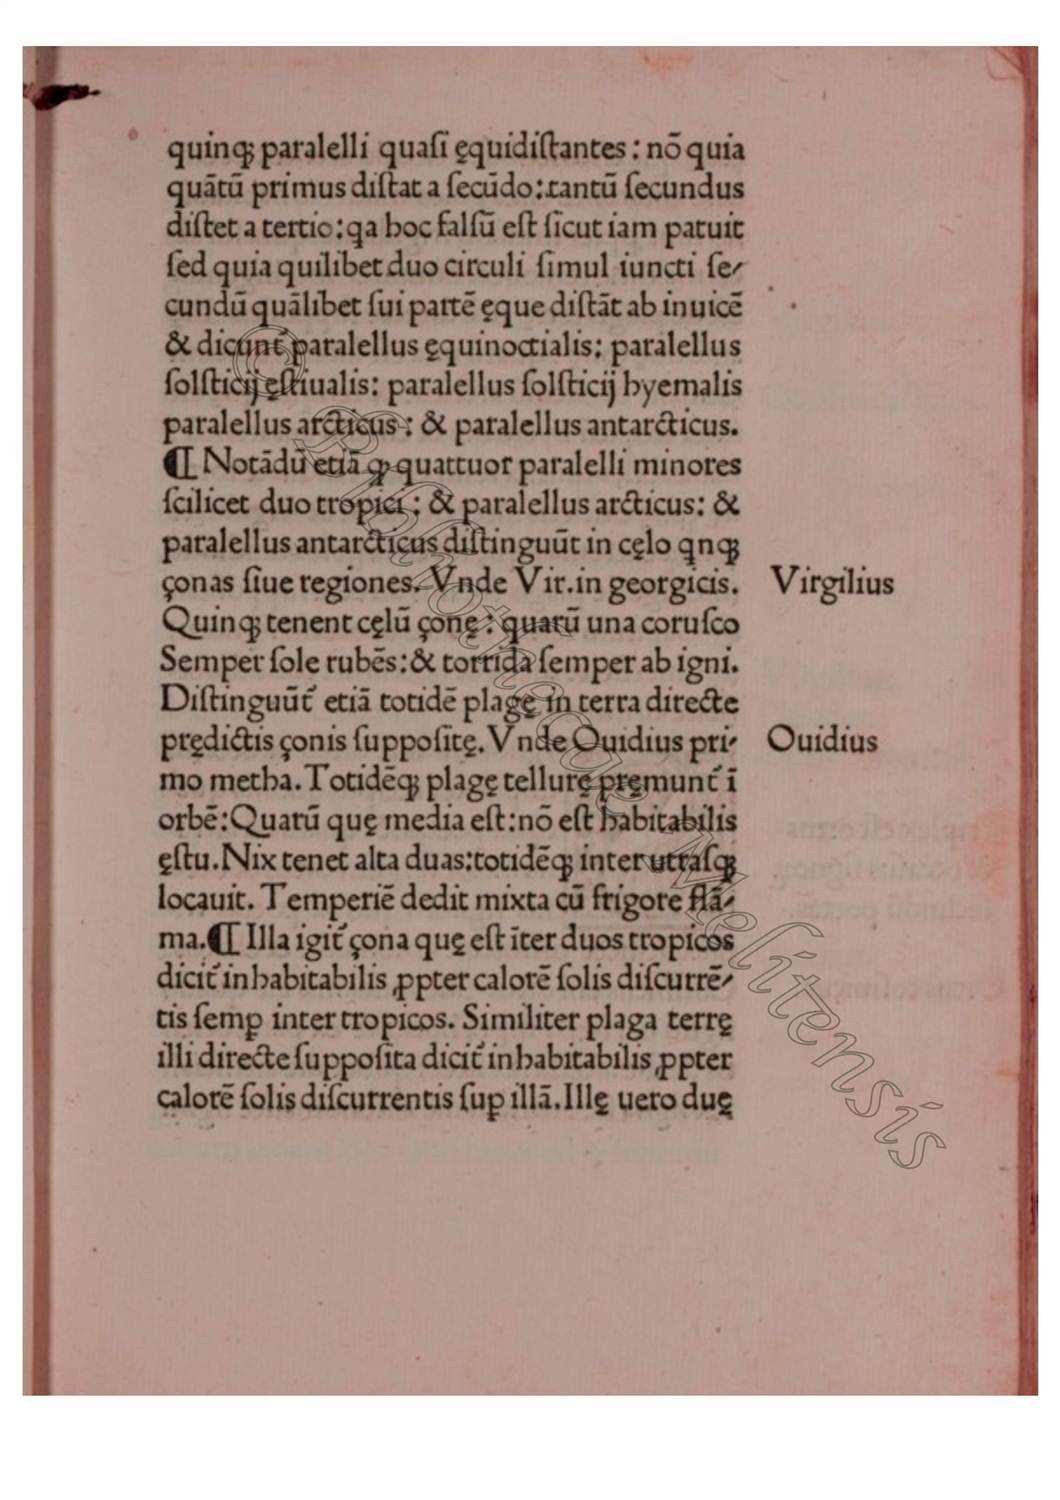 quinqꝫ paralelli quaſi ęquidiſtantes: nō quia
quātū primus diſtat a ſecūdo: tantū ſecundus
diſtet a tertio: qa hoc falſū eſt ſicut iam patuit
ſed quia quilibet duo circuli ſimul iuncti ſe⸗
cundū quālibet ſui partē ęque diſtāt ab inuicē
& dicunt᷑ paralellus ęquinoctialis: paralellus
ſolſticij ęſtiualis: paralellus ſolſticij hyemalis
paralellus arcticus: & paralellus antarcticus.
¶ Notādū etiā ꝙ quattuor paralelli minores
ſcilicet duo tropici: & paralellus arcticus: &
paralellus antarcticus diſtinguūt in cęlo qnqꝫ
çonas ſiue regiones. Vnde Vir. in georgicis.
Virgilius
Quinqꝫ tenent cęlū çonę: quarū una coruſco
Semper ſole rubēs: & torrida ſemper ab igni.
Diſtinguūt᷑ etiā totidē plagę in terra directe
prędictis çonis ſuppoſitę. Vnde Ouidius pri⸗
Ouidius
mo metha. Totidēqꝫ plagę tellurę pręmunt᷑ ī
orbē: Quarū quę media eſt: nō eſt habitabilis
ęſtu. Nix tenet alta duas: totidēqꝫ inter utraſqꝫ
locauit. Temperiē dedit mixta cū frigore flā⸗
ma. ¶ Illa igit᷑ çona quę eſt īter duos tropicos
dicit᷑ inhabitabilis ꝓpter calorē ſolis diſcurrē⸗
tis ſemꝑ inter tropicos. Similiter plaga terrę
illi directe ſuppoſita dicit᷑ inhabitabilis ꝓpter
calorē ſolis diſcurrentis ſuꝑ illā. Illę uero duę
© Bibliothecae Melitensis